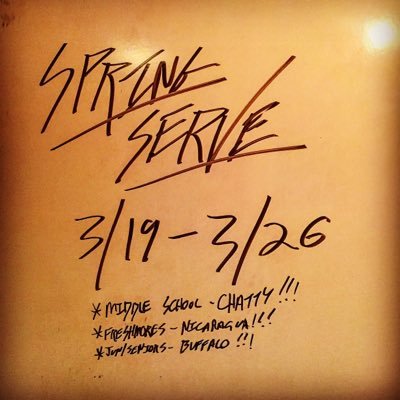 SPRING
SERVE
3/19 - 3/26
* MIDDLE SCHOOL - CHATTY!!!
* FRESHMORES - NICARAGUA!!!
* JUN/SENIORS - BUFFALO!!!